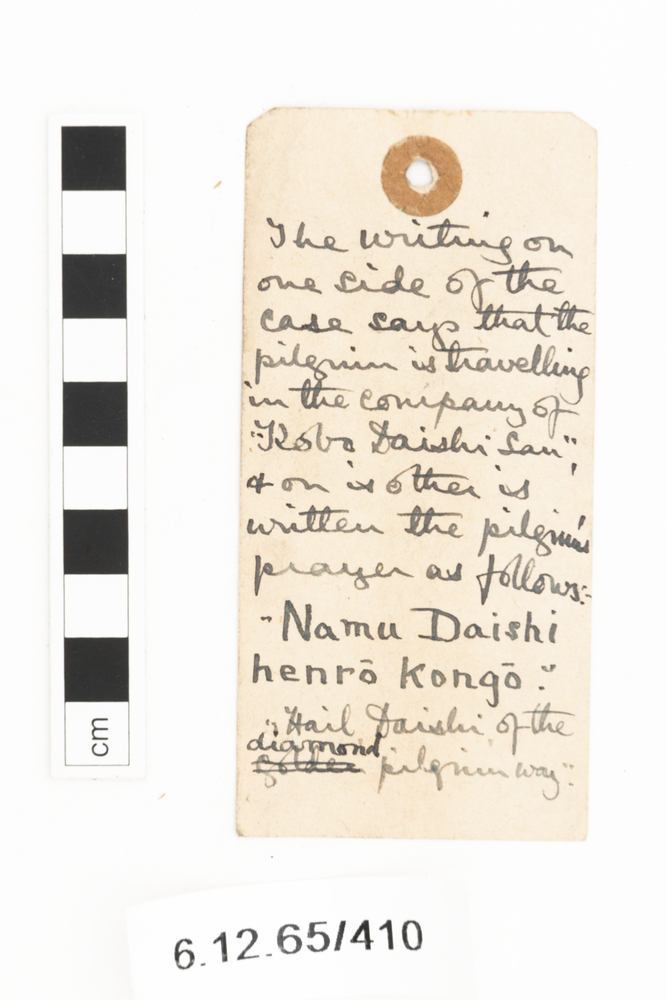 The writing on
one side of the
case says that the
pilgrim is travelling
in the company of
"Kobo Daishi San",
& on is other is
written the pilgrim's
prayer as follows:-
"Namu Daishi
henrō Kongō."
"Hail Daishi of the
diamond
golden pilgrim way".
cm
6.12.65/410